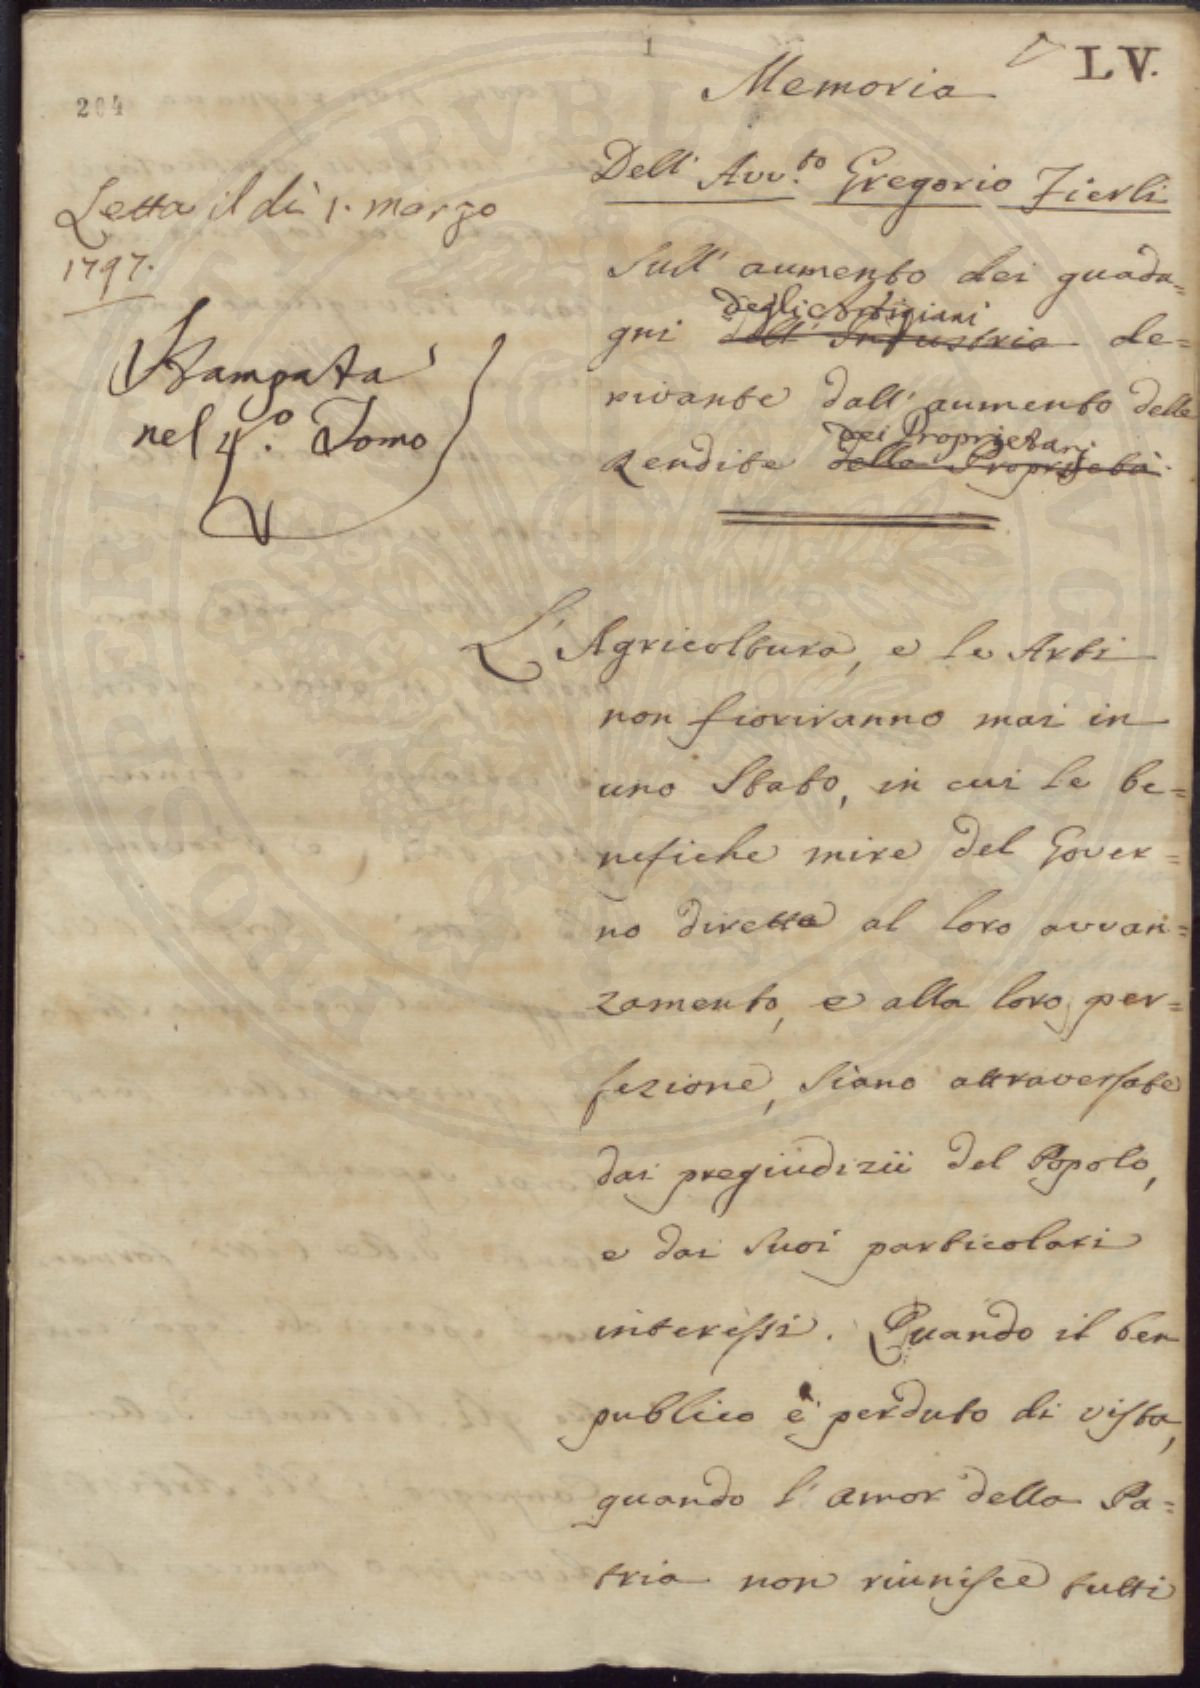 1
LV.
204
Memoria
Dell' Avv.to Gregorio Fierli
Letta il dì 1. marzo
1797.
Stampata
nel 4.o Tomo
Sull' aumento dei guada=
degli Artigiani
gni dell' Industria de=
rivante dall' aumento delle
dei Proprietari
Rendite delle Proprietà.
L' Agricoltura, e le Arti
non fioriranno mai in
uno Stato, in cui le be=
nefiche mire del Gover=
no dirette al loro avvan=
zamento, e alla loro per=
fezione, siano attraversate
dai pregiudizii del Popolo,
e dai suoi particolari
interessi. Quando il ben
publico è perduto di vista,
quando l' amor della Pa=
tria non riunisce tutti